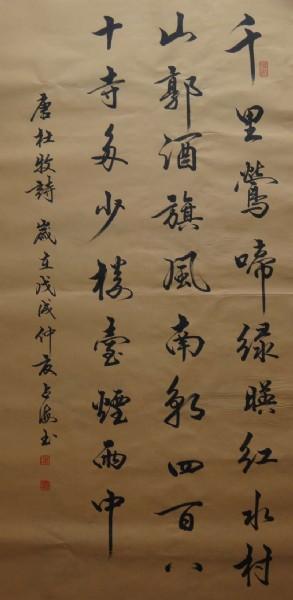 千里鶯啼緑暎紅水村
山郭酒旗風南朝四百八
十寺多少楼臺煙雨中
唐杜牧詩 歲在戊戌仲夏